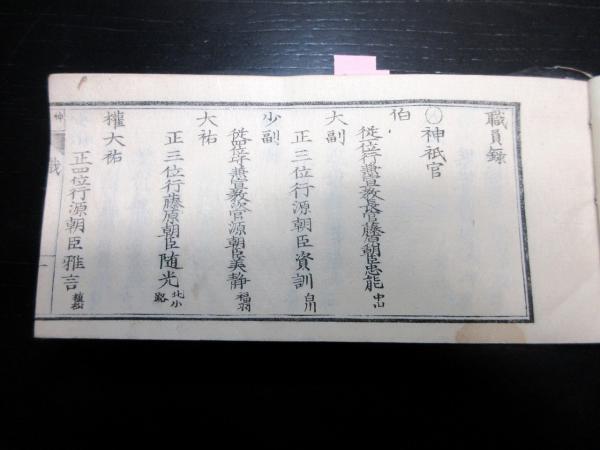 職員録
神祇官
伯
従一位行兼宣教長官藤原朝臣忠能 中山
大副
正三位行源朝臣資訓 白川
少副
従四位守兼宣教次官源朝臣美静 福羽
大祐
正三位行藤原朝臣随光 北小路
権大祐
正四位行源朝臣雅言 植松